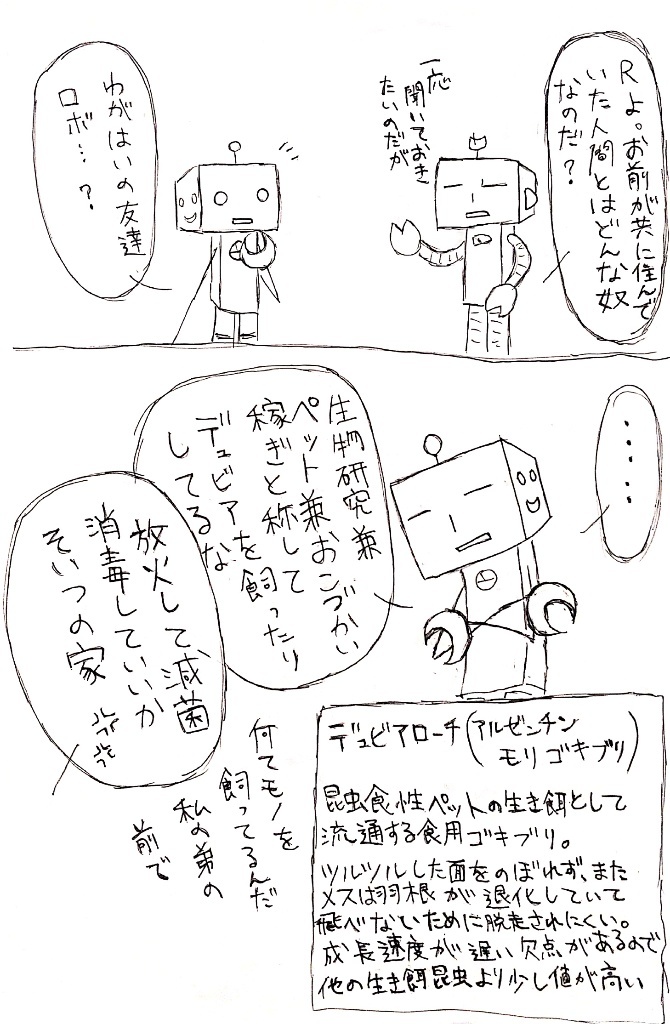 Rよ。お前が共に住んで
いた人間とはどんな奴
なのだ？
一応
聞いておき
たいのだが
わがはいの友達
ロボ…？
・・・・・
生物研究兼
ペット兼おこづかい
稼ぎと称して
デュビアを飼ったり
してるな
放火して滅菌
消毒していいか
そいつの家
何てモノを
飼ってるんだ
私の弟の
前で
デュビアローチ(アルゼンチン
モリゴキブリ)
昆虫食性ペットの生き餌として
流通する食用ゴキブリ。
ツルツルした面をのぼれず、また
メスは羽根が退化していて
飛べないために脱走されにくい。
成長速度が遅い欠点があるので
他の生き餌昆虫より少し値が高い